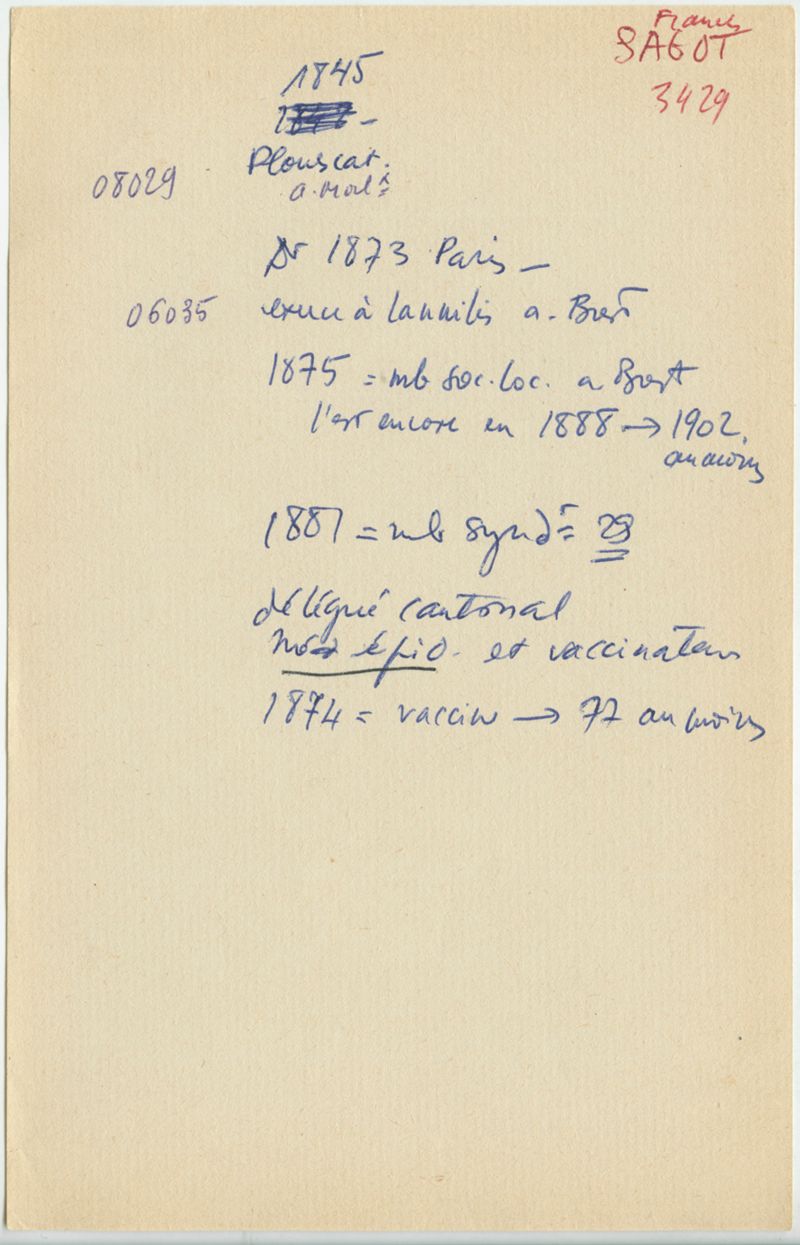 Francis
SAGOT
3429
1845
Plouscat.
08029
a. Morl x
Dr 1873 Paris –
06035 exerce à Lannilis a. Brest
1875 = mb soc. loc. a Brest
l'est encore en 1888 → 1902.
au moins
1887 = mb synd = 29
délégué cantonal
méd épid. et vaccinateur
1874 = vaccin → 77 au moins